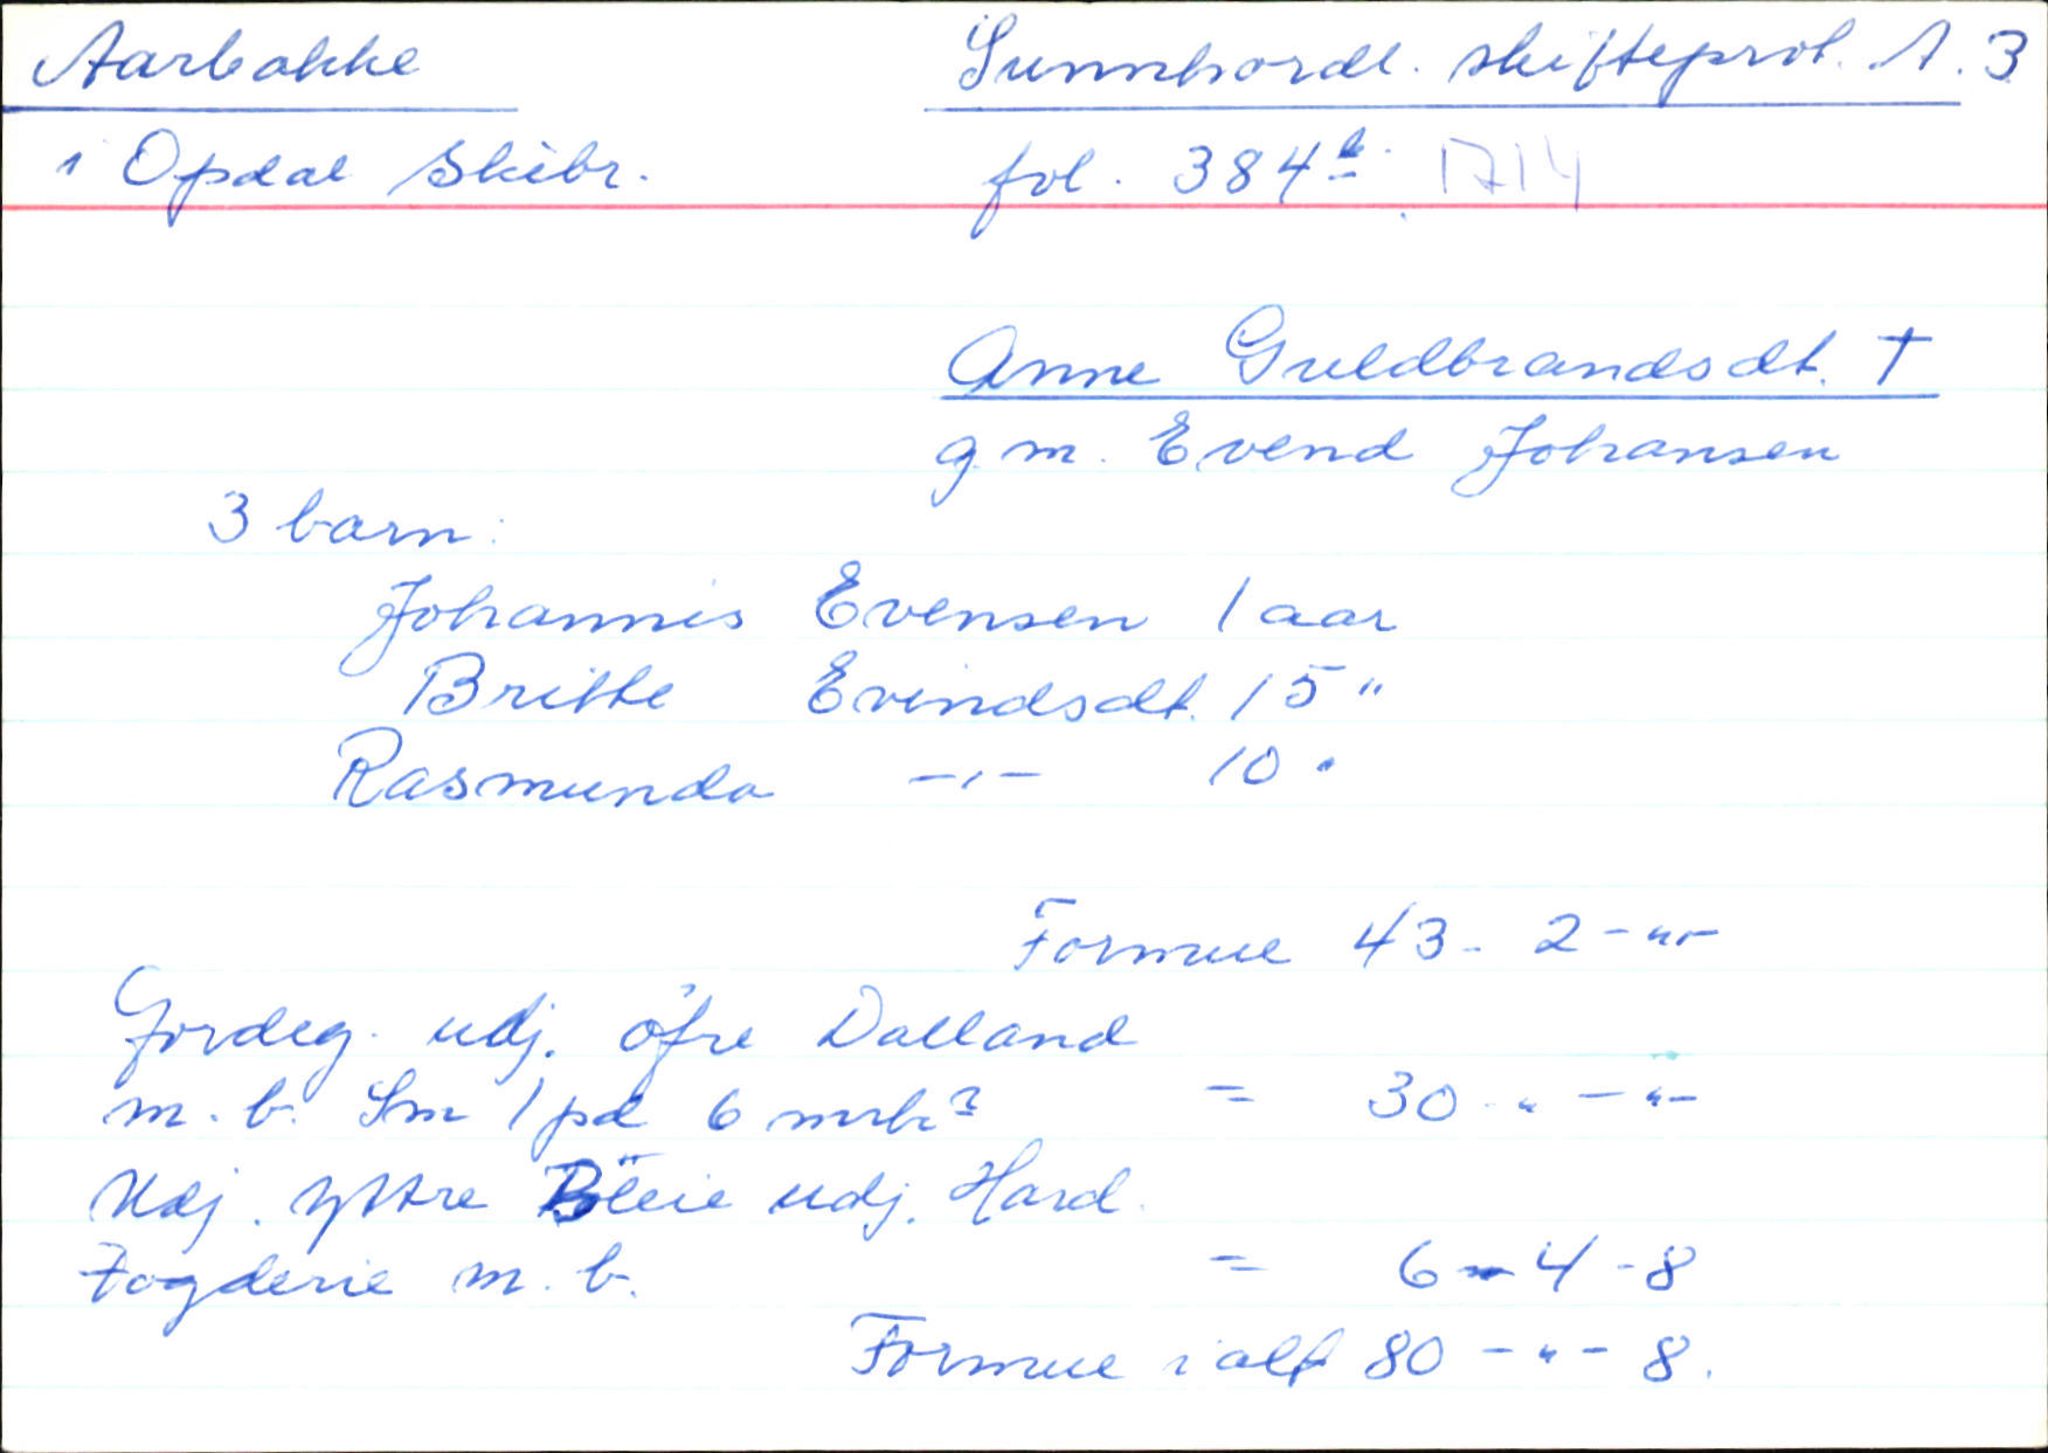 Aarbakke
Sunnhordl. skifteprot. A. 3
i Opdal Skibr.
fol. 384b. 1714
Anne Guldbrandsdt. †
g. m. Evend Johansen
3 barn:
Johannis Evensen 1 aar
Britte Evindsdt. 15 "
Rasmunda -,- 10 "
Formue 43 - 2 - "-
Jordeg. udj. öfre Dalland
m. b. Sm 1 pd 6 mrk? = 30 - " - "-
Udj. yttre Bleie udj. Hard.
Fogderie m. b. = 6 - 4 - 8
Formue i alt 80 - " - 8.